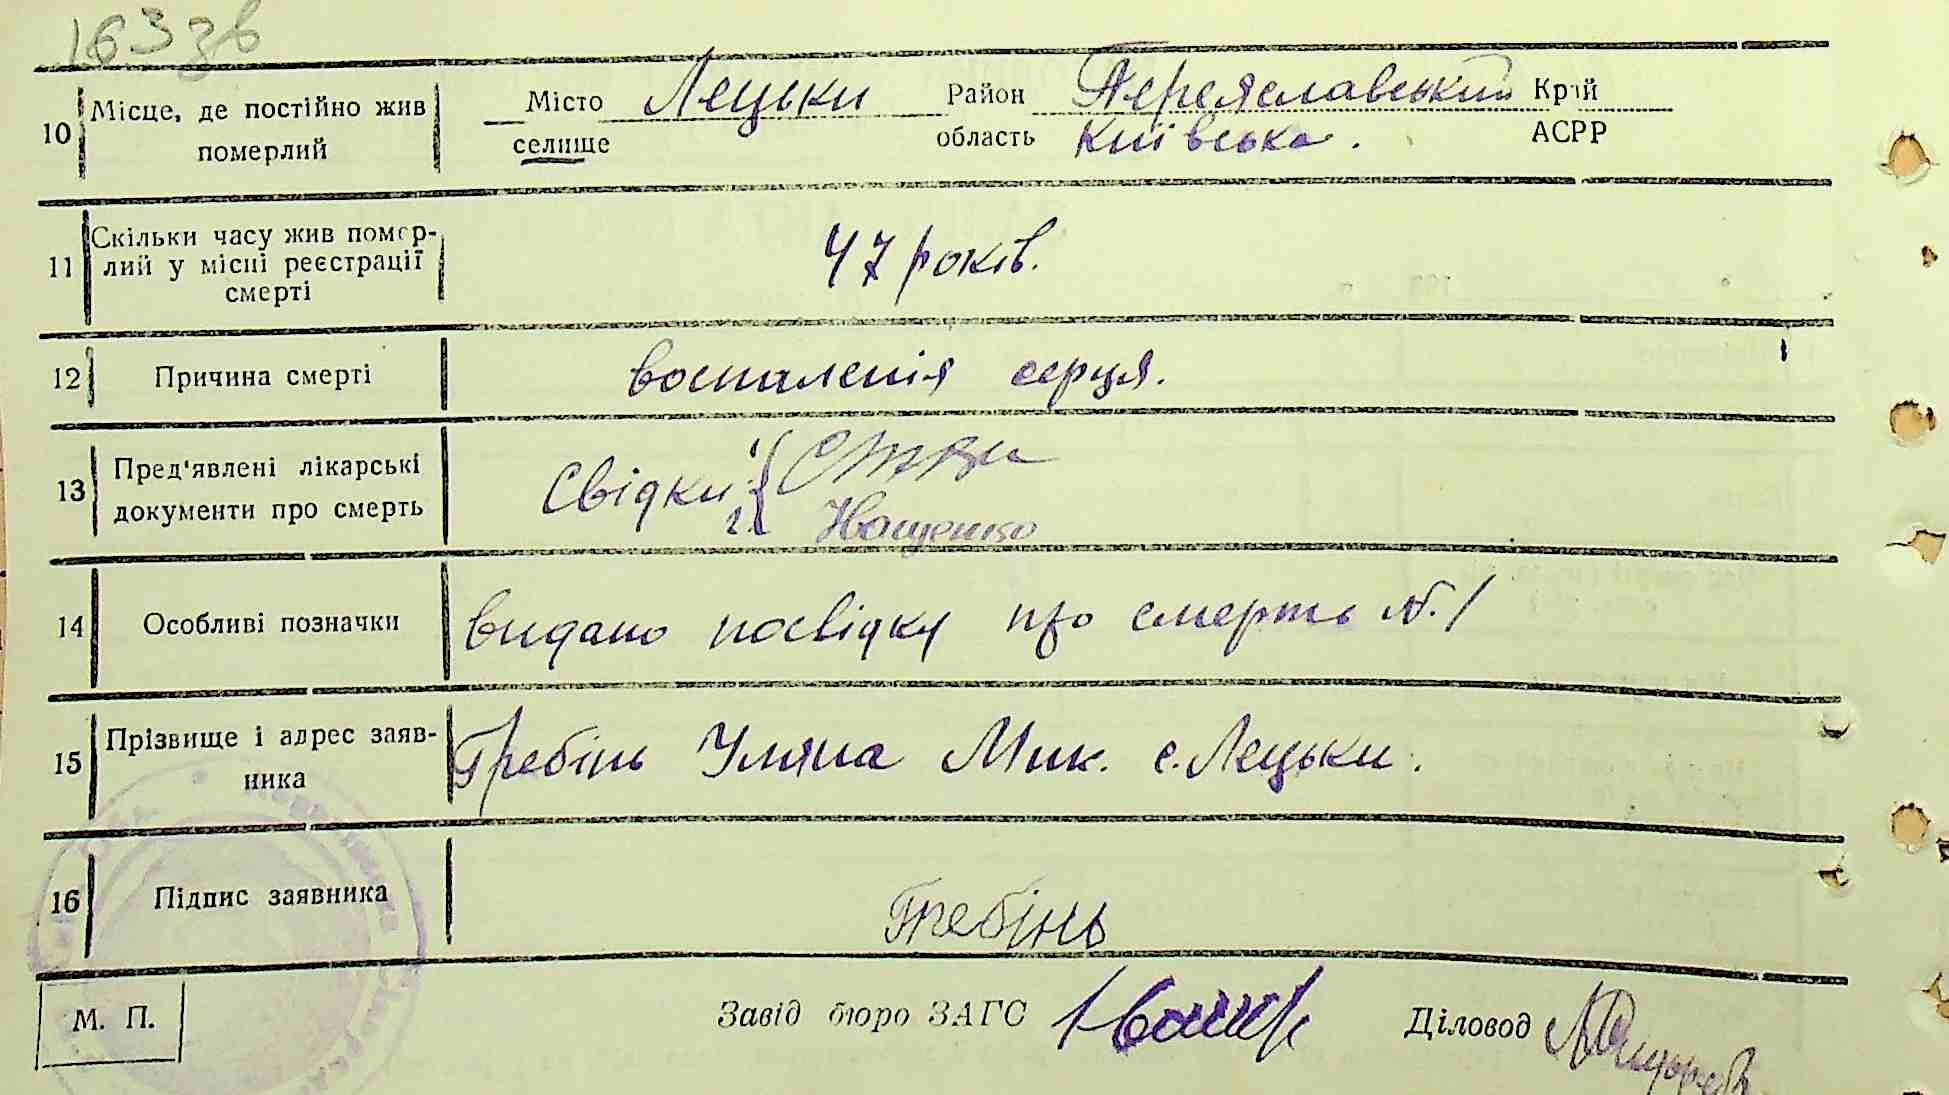 163 зв
10 Місце, де постійно жив померлий
Місто Лецьки Район Переяславський Край
селище область Київська. АСРР
11 Скільки часу жив помер-
лий у місці реєстрації
смерті
47 років.
12 Причина смерті воспаленія серця.
13 Пред'явлені лікарські
документи про смерть
Свідки 1.
2.
14 Особливі позначки видано посвідку про смерть №. 1
15 Прізвище і адрес заяв-
ника
Гребінь Уляна Мик. с. Лецьки.
16 Підпис заявника Гребінь
М. П. Завід бюро ЗАГС Діловод